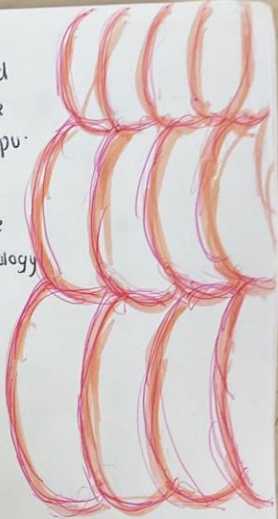 d
e
pu.
e
ology